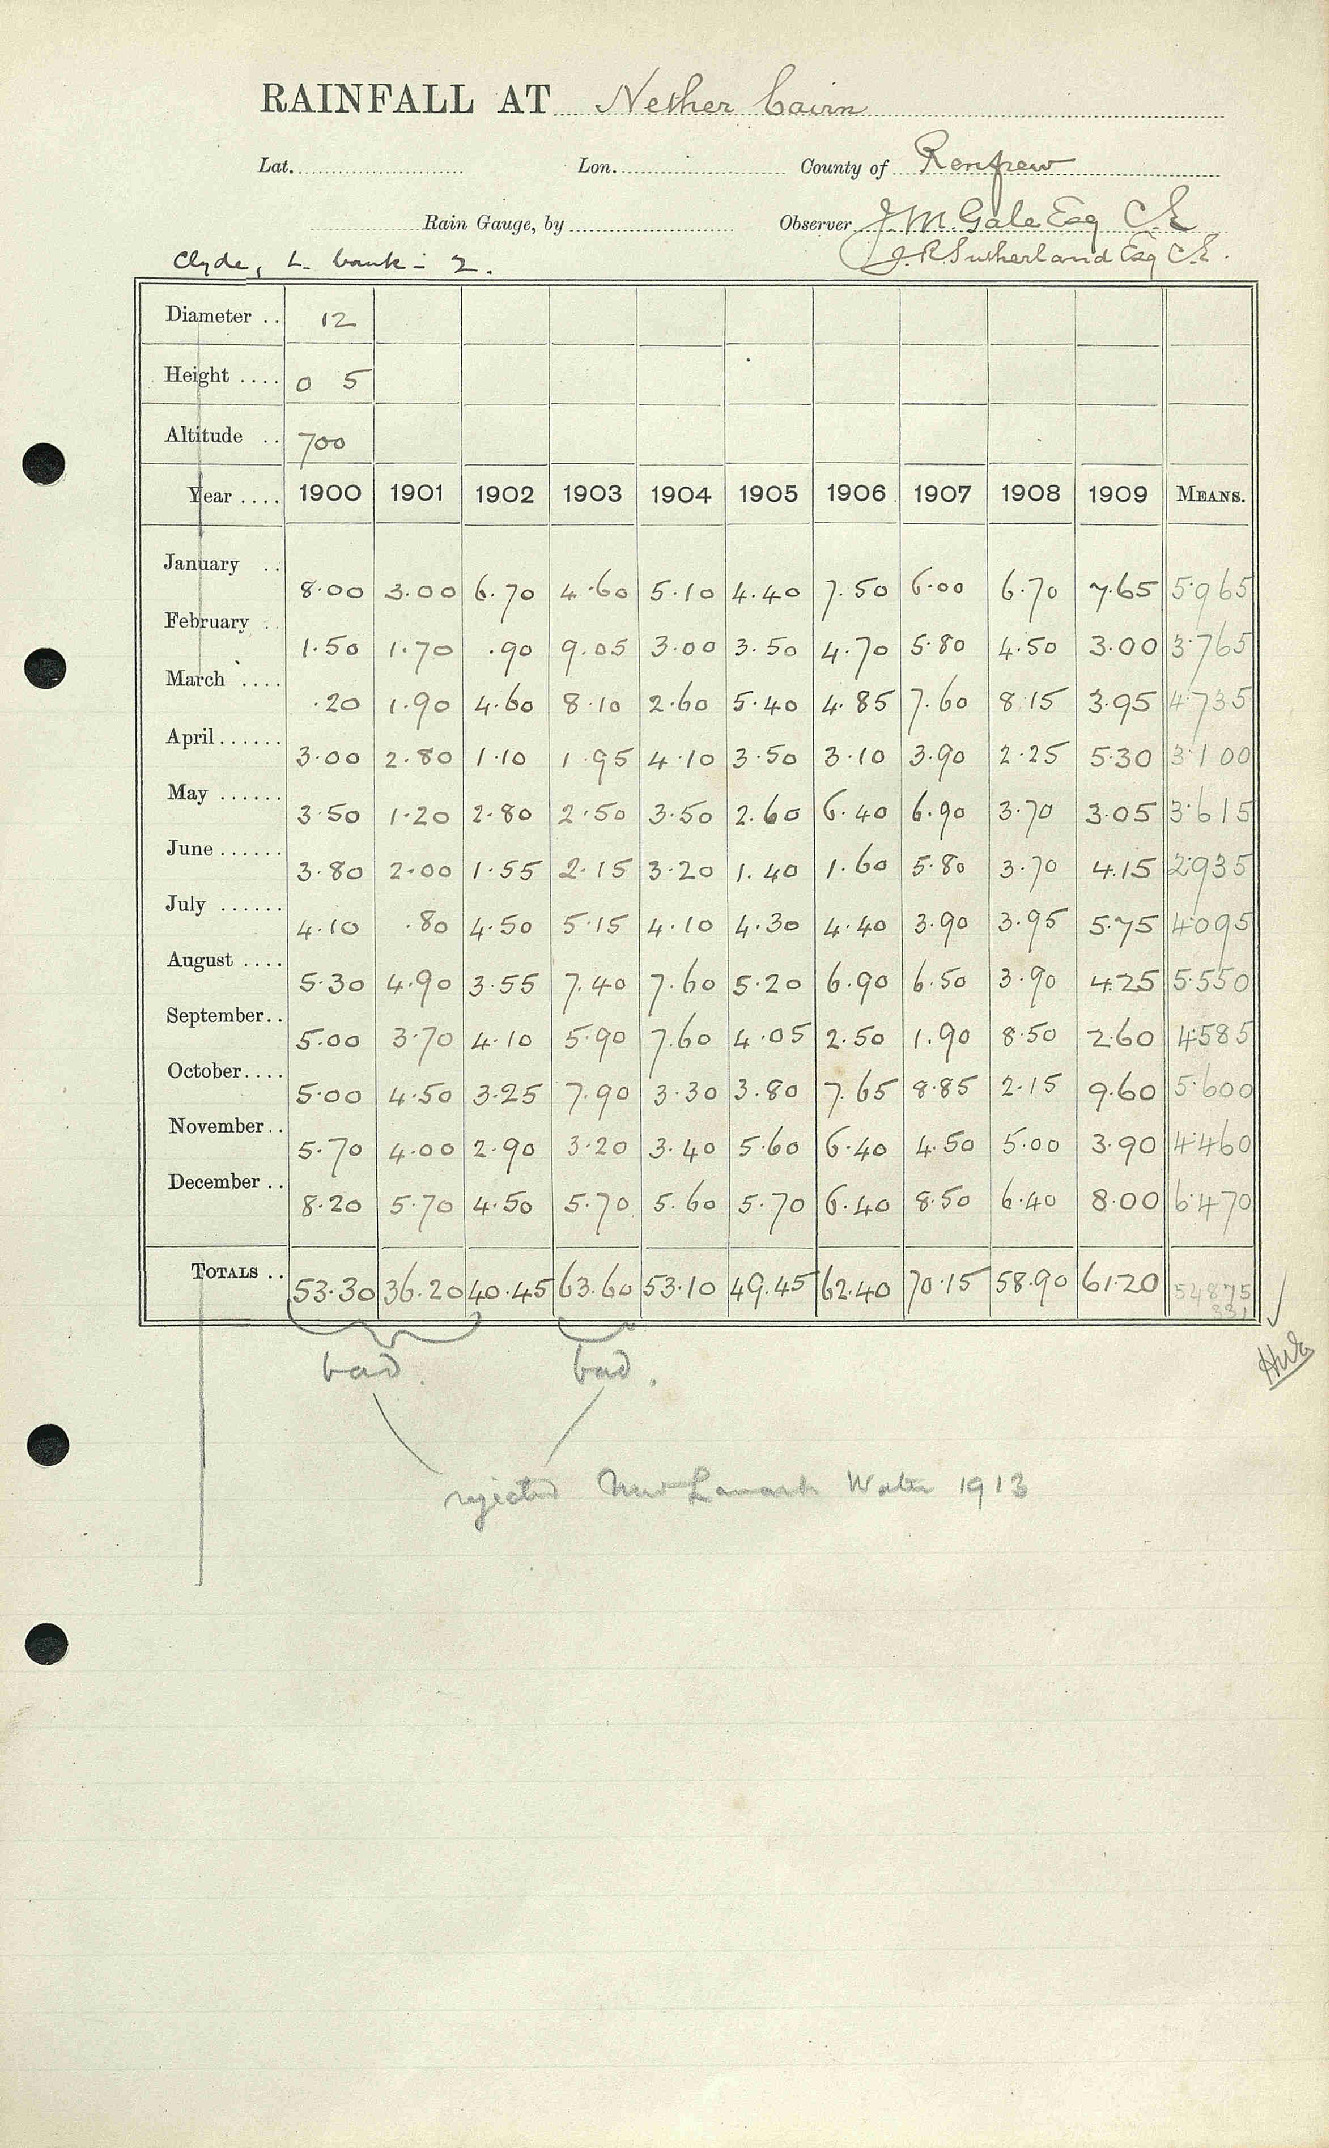 RAINFALL AT Nether Cairn
Lat. Lon. County of Renfrew
Rain Gauge, by Observer J. M. Gale Esq C.E.
Clyde, L. bank - 2. J. R. Sutherland Esq C.E.
Diameter .. 12
Height .... 0 5
Altitude .. 700
Year .... 1900 1901 1902 1903 1904 1905 1906 1907 1908 1909 MEANS.
January .. 8.00 3.00 6.70 4.60 5.10 4.40 7.50 6.00 6.70 7.65 5.965
February .. 1.50 1.70 .90 9.05 3.00 3.50 4.70 5.80 4.50 3.00 3.765
March .... .20 1.90 4.60 8.10 2.60 5.40 4.85 7.60 8.15 3.95 4.735
April ...... 3.00 2.80 1.10 1.95 4.10 3.50 3.10 3.90 2.25 5.30 3.100
May ...... 3.50 1.20 2.80 2.50 3.50 2.60 6.40 6.90 3.70 3.05 3.615
June ...... 3.80 2.00 1.55 2.15 3.20 1.40 1.60 5.80 3.70 4.15 2.935
July ...... 4.10 .80 4.50 5.15 4.10 4.30 4.40 3.90 3.95 5.75 4.095
August .... 5.30 4.90 3.55 7.40 7.60 5.20 6.90 6.50 3.90 4.25 5.550
September .. 5.00 3.70 4.10 5.90 7.60 4.05 2.50 1.90 8.50 2.60 4.585
October .... 5.00 4.50 3.25 7.90 3.30 3.80 7.65 8.85 2.15 9.60 5.600
November .. 5.70 4.00 2.90 3.20 3.40 5.60 6.40 4.50 5.00 3.90 4.460
December .. 8.20 5.70 4.50 5.70 5.60 5.70 6.40 8.50 6.40 8.00 6.470
TOTALS .. 53.30 36.20 40.45 63.60 53.10 49.45 62.40 70.15 58.90 61.20 54875
331
bad. bad.
rejected New Lanark Water 1913